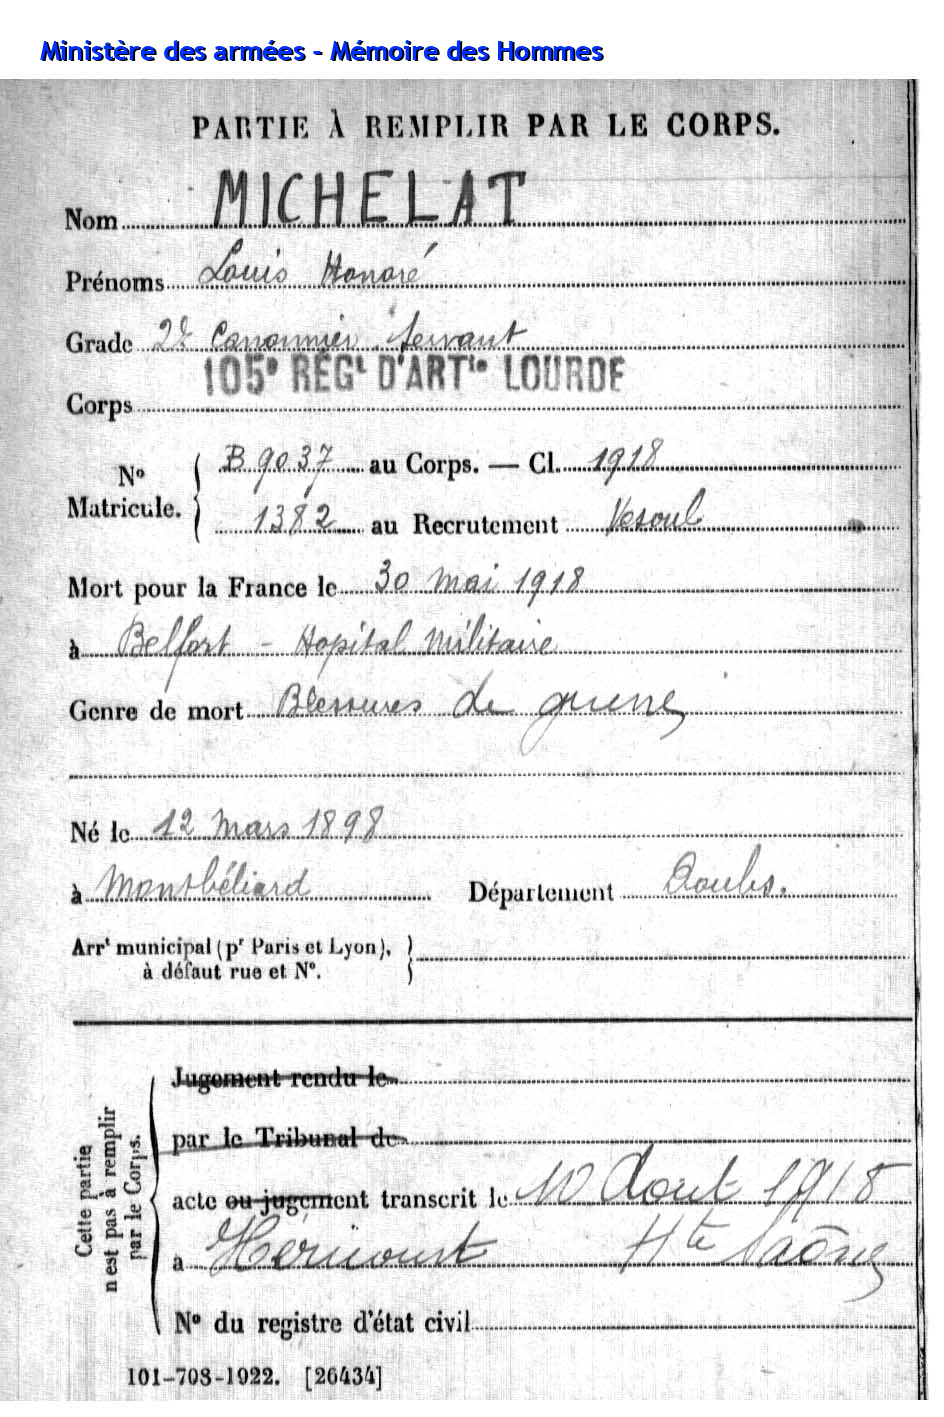 Ministère des armées - Mémoire des Hommes
PARTIE À REMPLIR PAR LE CORPS.
Nom MICHELAT
Prénoms Louis Honoré
Grade 2e Canonnier Servant
105e RÉGt D'ARTie LOURDE
Corps
No Matricule.
B 9037 au Corps. — Cl. 1918
1382 au Recrutement Vesoul
Mort pour la France le 30 Mai 1918
à Belfort - Hopital Militaire
Genre de mort Blessures de guerre
Né le 12 Mars 1898
à Montbéliard Département Doubs.
Arrt municipal (pr Paris et Lyon),
à défaut rue et No.
Cette partie
n'est pas à remplir
par le Corps.
Jugement rendu le
par le Tribunal de
acte ou jugement transcrit le 10 Aout 1918
à Héricourt Hte Saône
No du registre d'état civil
101-708-1922. [26434]